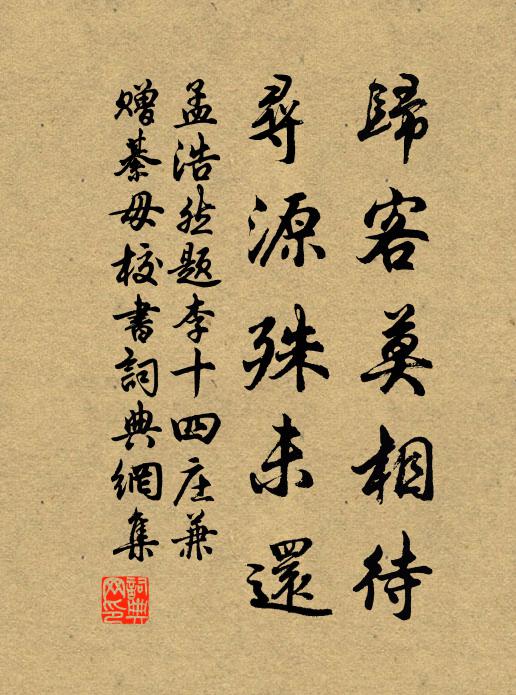 歸客莫相待
尋源殊未還
孟浩然題李十四庄兼
贈綦毋校書詞典網集
詞典
网印